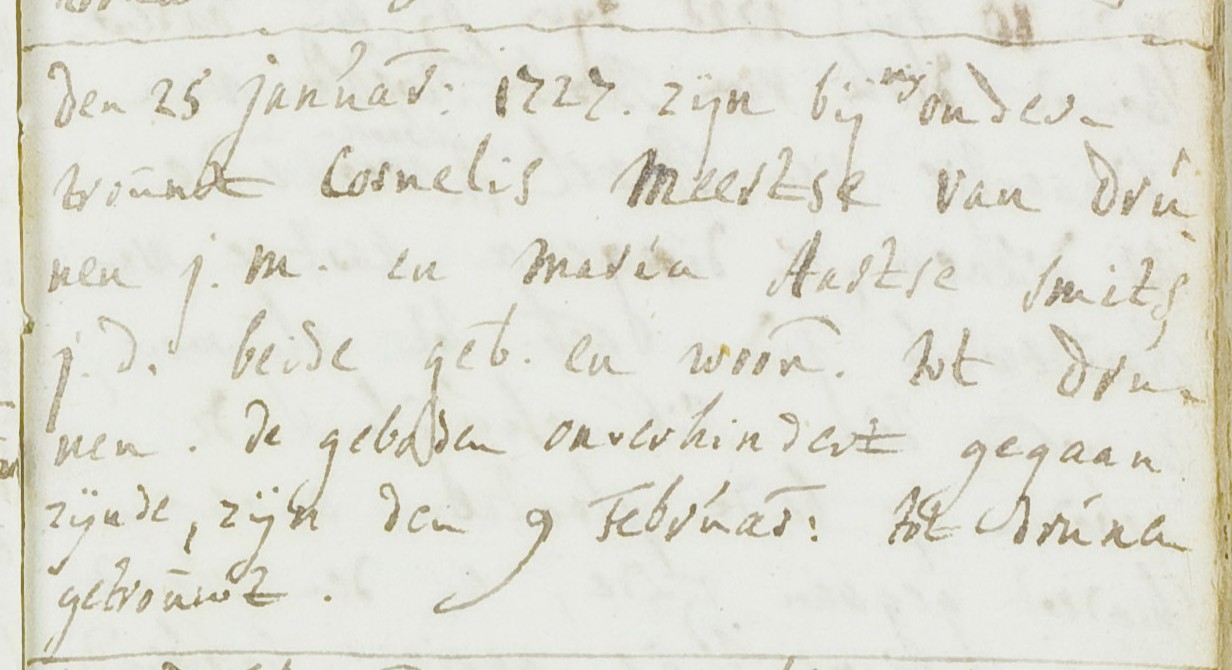 den 25 januar: 1727. zijn bij mij onder-
trouwt Cornelis Meertse van Dru
nen j. m. en Maria Aertse Smits
j. d. beide geb. en woon. tot Dru-
nen. de geboden onverhindert gegaan
zijnde, zijn den 9 Februar: tot Drunen
getrouwt.